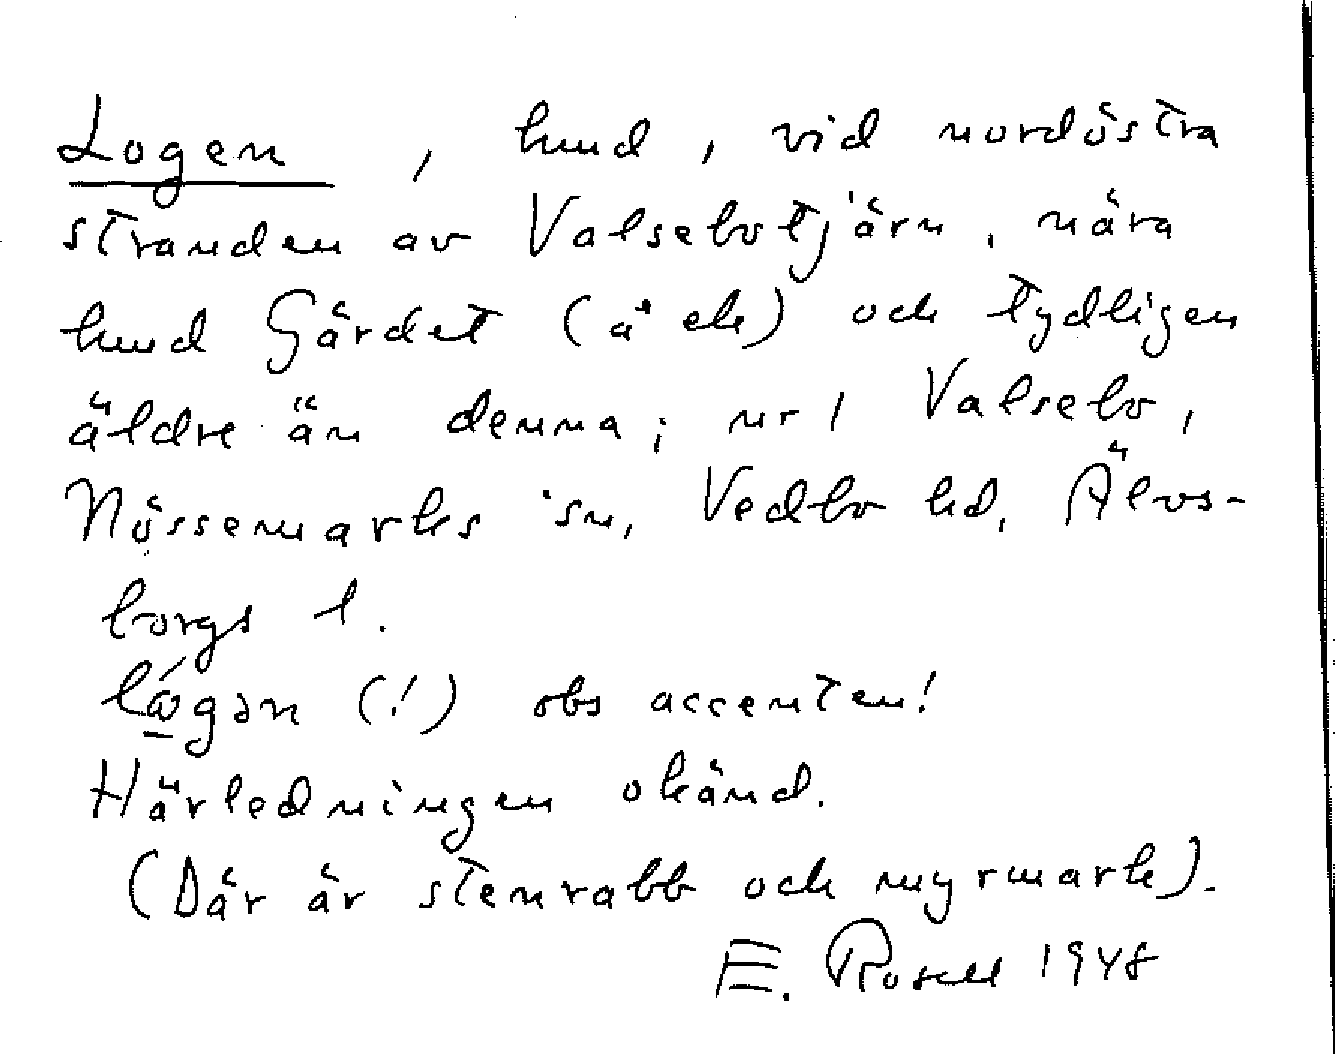 Logen, lund, vid nordöstra
stranden av Valsebotjärn, nära
lund Gärdet (å ek) och tydligen
äldre än denna; nr 1 Valsebo,
Nössemarks sn, Vedbo hd, Älvs-
borgs l.
(!) obs accenten!
Härledningen okänd.
(Där är stenrabb och myrmark).
E. Rosell 1948